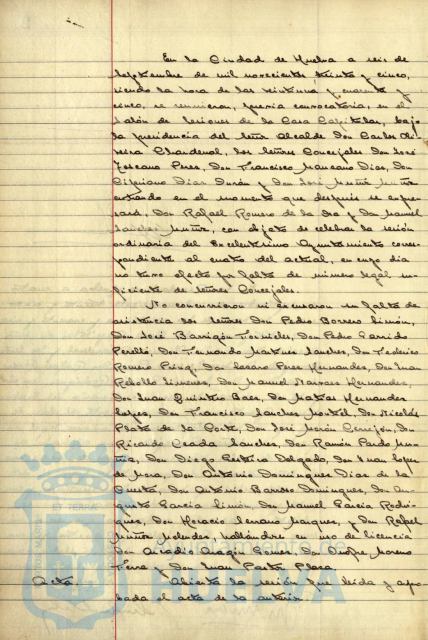 En la Ciudad de Huelva a seis de
Septiembre de mil novecientos treinta y cinco,
siendo la hora de las veintiuna y cuarenta y
cinco, se reunieron, previa convocatoria, en el
Salón de Sesiones de la Casa Capitular, bajo
la presidencia del Señor Alcalde Don Carlos Oli-
veira Chardenal, los Señores Concejales Don José
Toscano Perez, Don Francisco Manzano Dias, Don
Cipriano Dias Durán y Don José Muñiz Muñiz
entrando en el momento que después se expre-
sará, Don Rafael Romero de la Osa y Don Manuel
Sanchez Muñiz, con objeto de celebrar la sesión
ordinaria del Excelentísimo Ayuntamiento corres-
pondiente al cuatro del actual, en cuyo dia
no tuvo efecto por falta de número legal su-
ficiente de Señores Concejales.
No concurrieron ni excusaron su falta de
asistencia los señores Don Pedro Borrero Limón,
Don José Barrigón Fornieles, Don Pedro Garrido
Perelló, Don Fernando Martinez Sanchez, Don Federico
Romero, Don Lazaro Perez Hernandez, Don Juan
Rebollo Jimenez, Don Manuel Narvaez Hernandez,
Don Juan Quintero Baez, Don Matías Hernandez
Lopez, Don Francisco Sanchez, Don Nicolás
Plata de la Corte, Don José Morón Cerrejón, Don
Ricardo Sanchez, Don Ramón Pardo Mu-
ñiz, Don Diego Delgado, Don Juan Lopez
de Mora, Don Antonio Dominguez Dias de la
Cuesta, Don Antonio Barroso Dominguez, Don Au-
gusto Garcia Limón, Don Manuel Garcia Rodri-
guez, Don Horacio Serrano Marquez, y Don Rafael
Muñiz, hallándose en uso de licencia
Don Arcadio Aragón Gomez, Don Moreno
y Don Juan Pastor Plaza.
Acta. Abierta la sesión fué leida y apro-
bada el acta de la anterior.